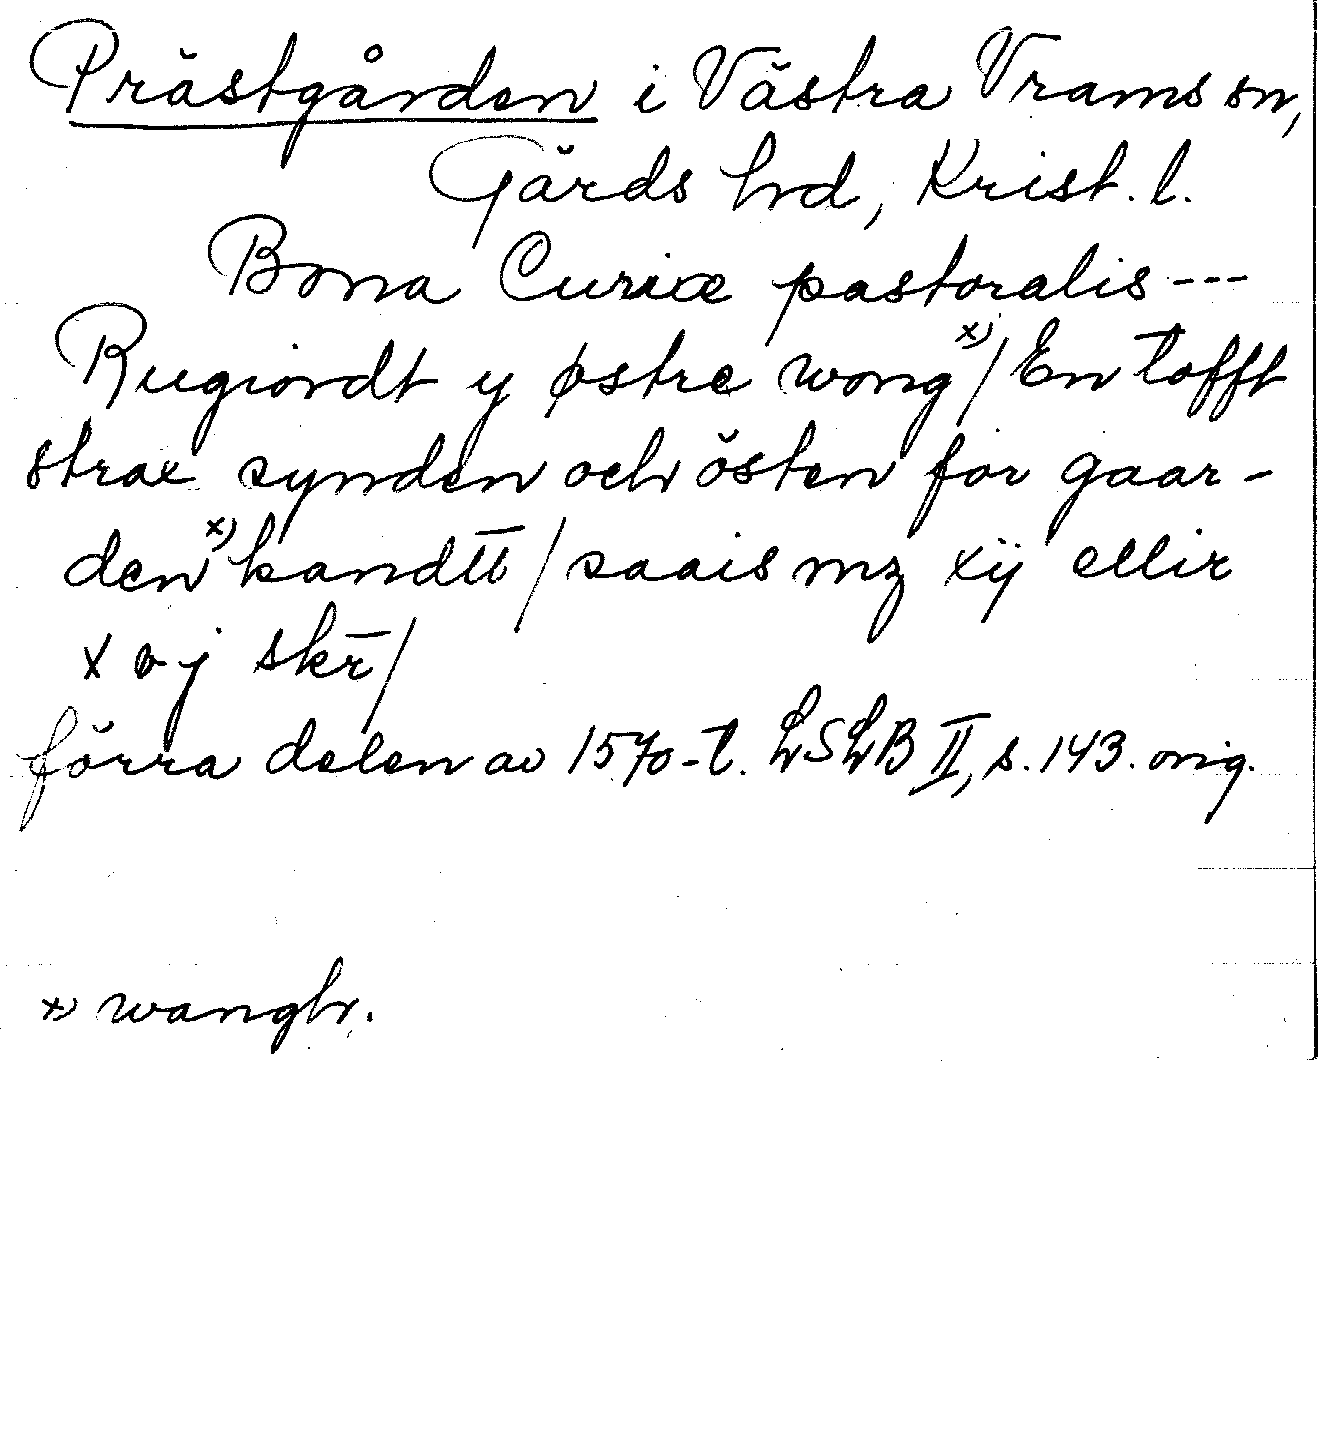 Prästgården i Västra Vrams sn,
Gärds hd, Krist. l.
Bona Curiæ pastoralis ---
Rugiordt y østre wong x)/ En tofft
strax synden och östen for gaar-
den x) kandtt / saais mz xij ellir
xvj skr/
förra delen av 1570-t. LSLB II, s. 143. orig.
x) wangh.